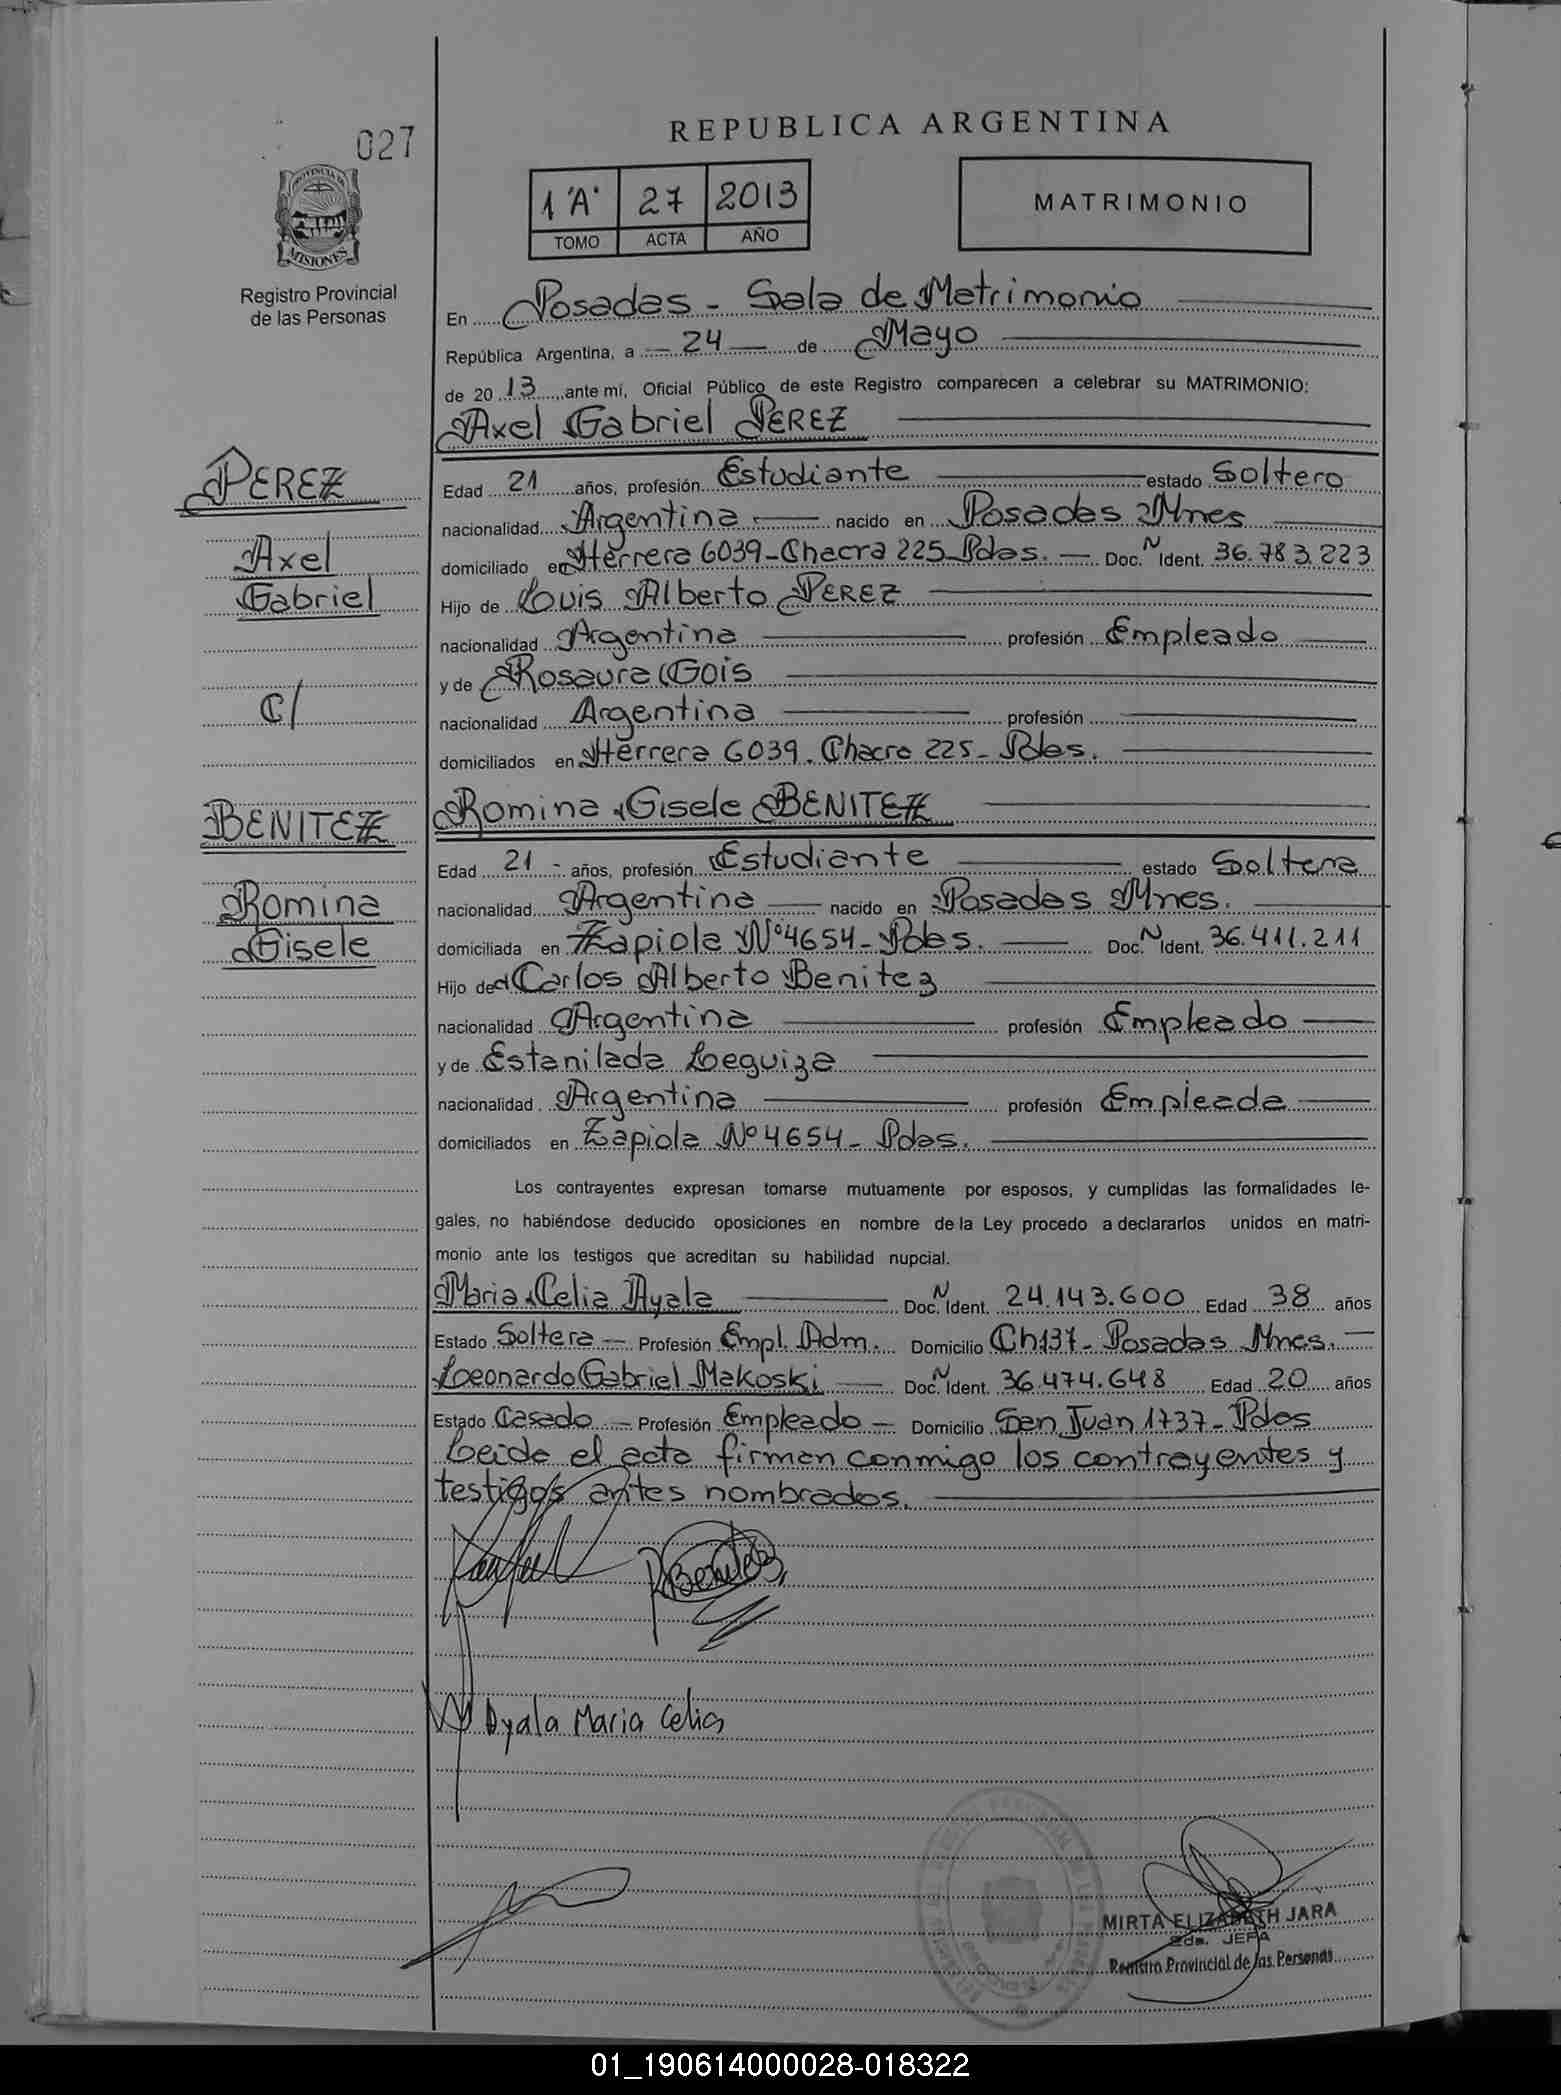 027
REPUBLICA ARGENTINA
1 "A" 27 2013
TOMO ACTA AÑO
MATRIMONIO
PROVINCIA DE
MISIONES
Registro Provincial
de las Personas
En Posadas - Sala de Matrimonio
República Argentina, a 24 de Mayo
de 2013 ante mí, Oficial Público de este Registro comparecen a celebrar su MATRIMONIO:
Axel Gabriel PEREZ
PEREZ
Axel
Gabriel
C/
BENITEZ
Romina
Gisele
Edad 21 años, profesión Estudiante estado Soltero
nacionalidad Argentina nacido en Posadas Mnes
domiciliado en Herrera 6039 - Chacra 225 - Pdas. Doc. N Ident. 36.783.223
Hijo de Luis Alberto PEREZ
nacionalidad Argentina profesión Empleado
y de Rosaura Gois
nacionalidad Argentina profesión
domiciliados en Herrera 6039. Chacra 225 - Pdas.
Romina Gisele BENITEZ
Edad 21 - años, profesión Estudiante estado Soltera
nacionalidad Argentina nacido en Posadas Mnes.
domiciliada en Zapiola Nº 4654 - Pdas. Doc. N Ident. 36.411.211
Hijo de Carlos Alberto Benitez
nacionalidad Argentina profesión Empleado
y de Estanilada Leguiza
nacionalidad Argentina profesión Empleada
domiciliados en Zapiola Nº 4654 - Pdas.
Los contrayentes expresan tomarse mutuamente por esposos, y cumplidas las formalidades le-
gales, no habiéndose deducido oposiciones en nombre de la Ley procedo a declararlos unidos en matri-
monio ante los testigos que acreditan su habilidad nupcial.
Maria Celia Ayala Doc. N Ident. 24.143.600 Edad 38 años
Estado Soltera Profesión Empl. Adm. Domicilio Ch 137 - Posadas Mnes.
Leonardo Gabriel Makoski Doc. N Ident. 36.474.648 Edad 20 años
Estado Casado Profesión Empleado Domicilio San Juan 1737 - Pdas
Leida el acta firman conmigo los contrayentes y
testigos antes nombrados.
Benitez
Ayala Maria Celia
MIRTA ELIZABETH JARA
2da. JEFA
Registro Provincial de las Personas
01_190614000028-018322